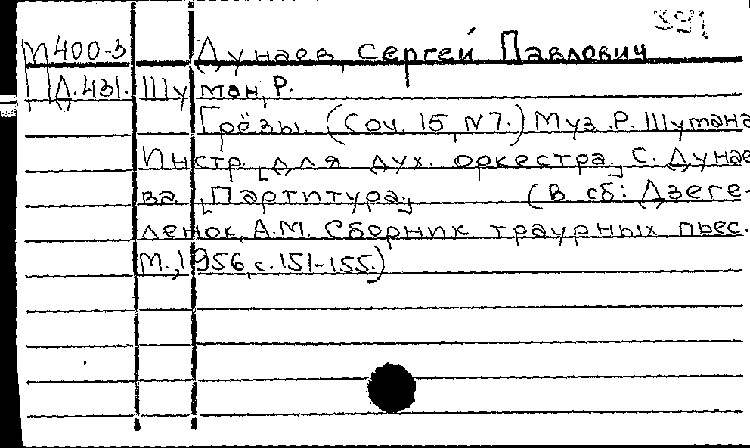 391
М400-3 Дунаев, Сергей Павлович
Д.431. Шуман, Р.
Грёзы. (Соч. 15, N7.) Муз. Р. Шумана
Инстр. [для дух. оркестра] С. Дунае-
ва. [Партитура] (В сб.: Дзеге-
ленок, А.М. Сборник траурных пьес.
М., 1956, с. 151-155.)